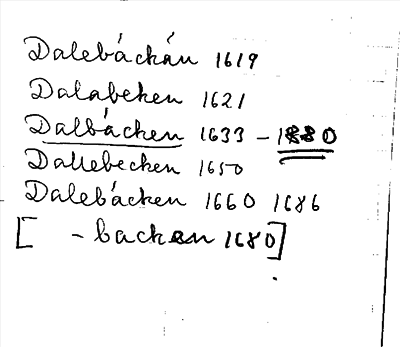 Dalebáckán 1619
Dalabeken 1621
Dalbácken 1633 - 1880
Dallebecken 1650
Dalebácken 1660 1686
[ - backen 1680]